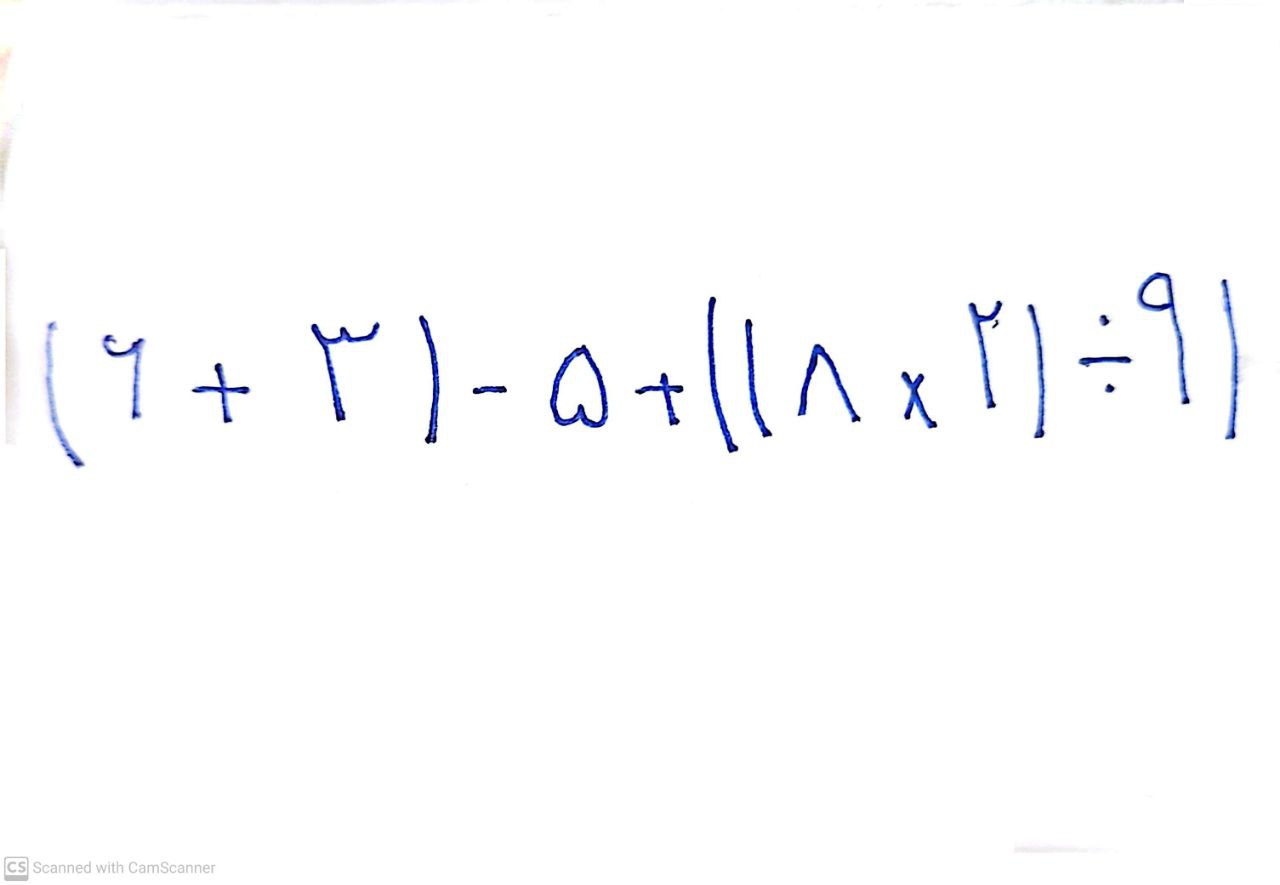 (۶ + ۳) - ۵ + ((۸ × ۲) ÷ ۹)
CS Scanned with CamScanner